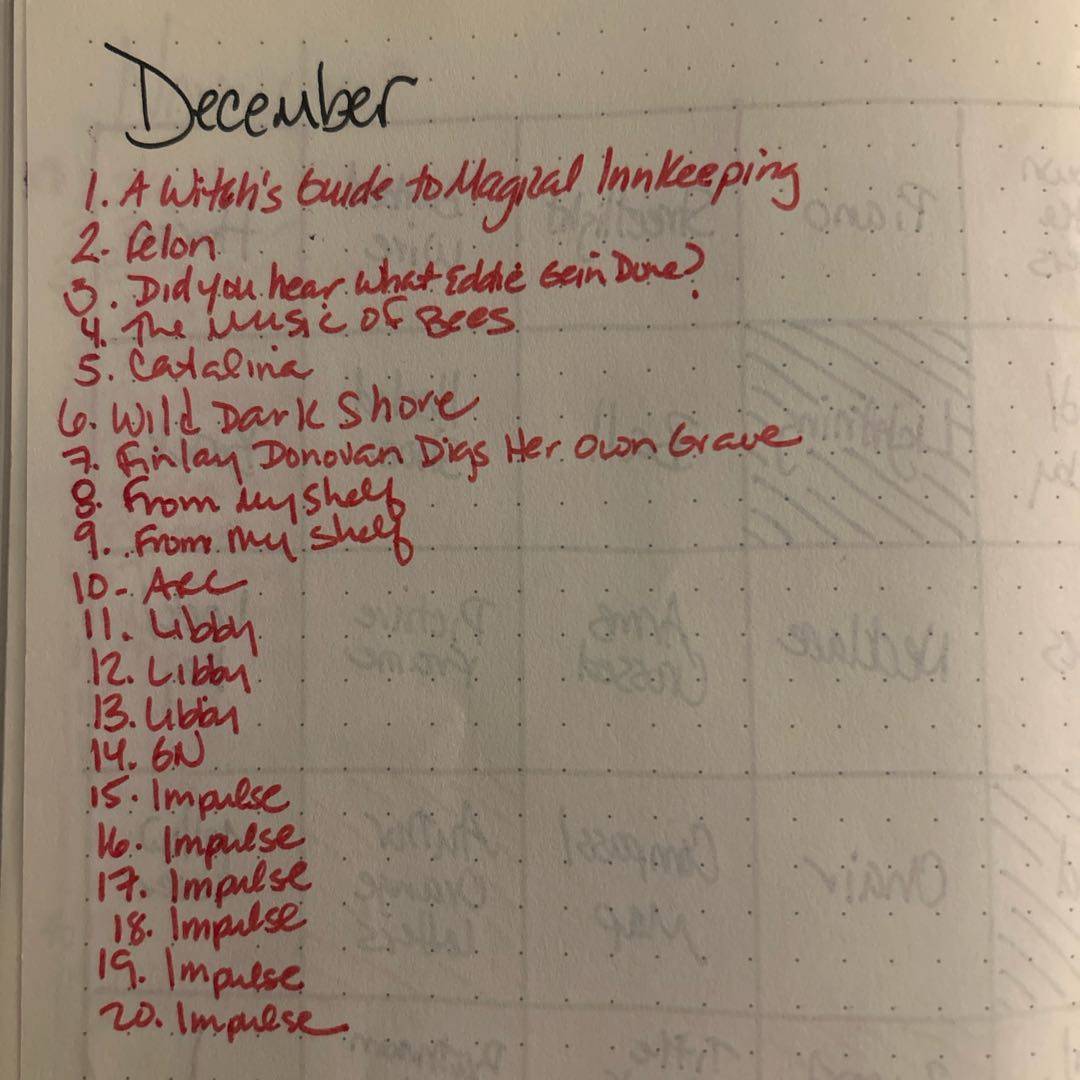 December
1. A Witch's Guide to Magical Innkeeping
2. Felon
3. Did you hear what Eddie Gein Done?
4. The Music of Bees
5. Catalina
6. Wild Dark Shore
7. Finlay Donovan Digs Her Own Grave
8. From My Shelf
9. From My Shelf
10. ARC
11. Libby
12. Libby
13. Libby
14. GN
15. Impulse
16. Impulse
17. Impulse
18. Impulse
19. Impulse
20. Impulse